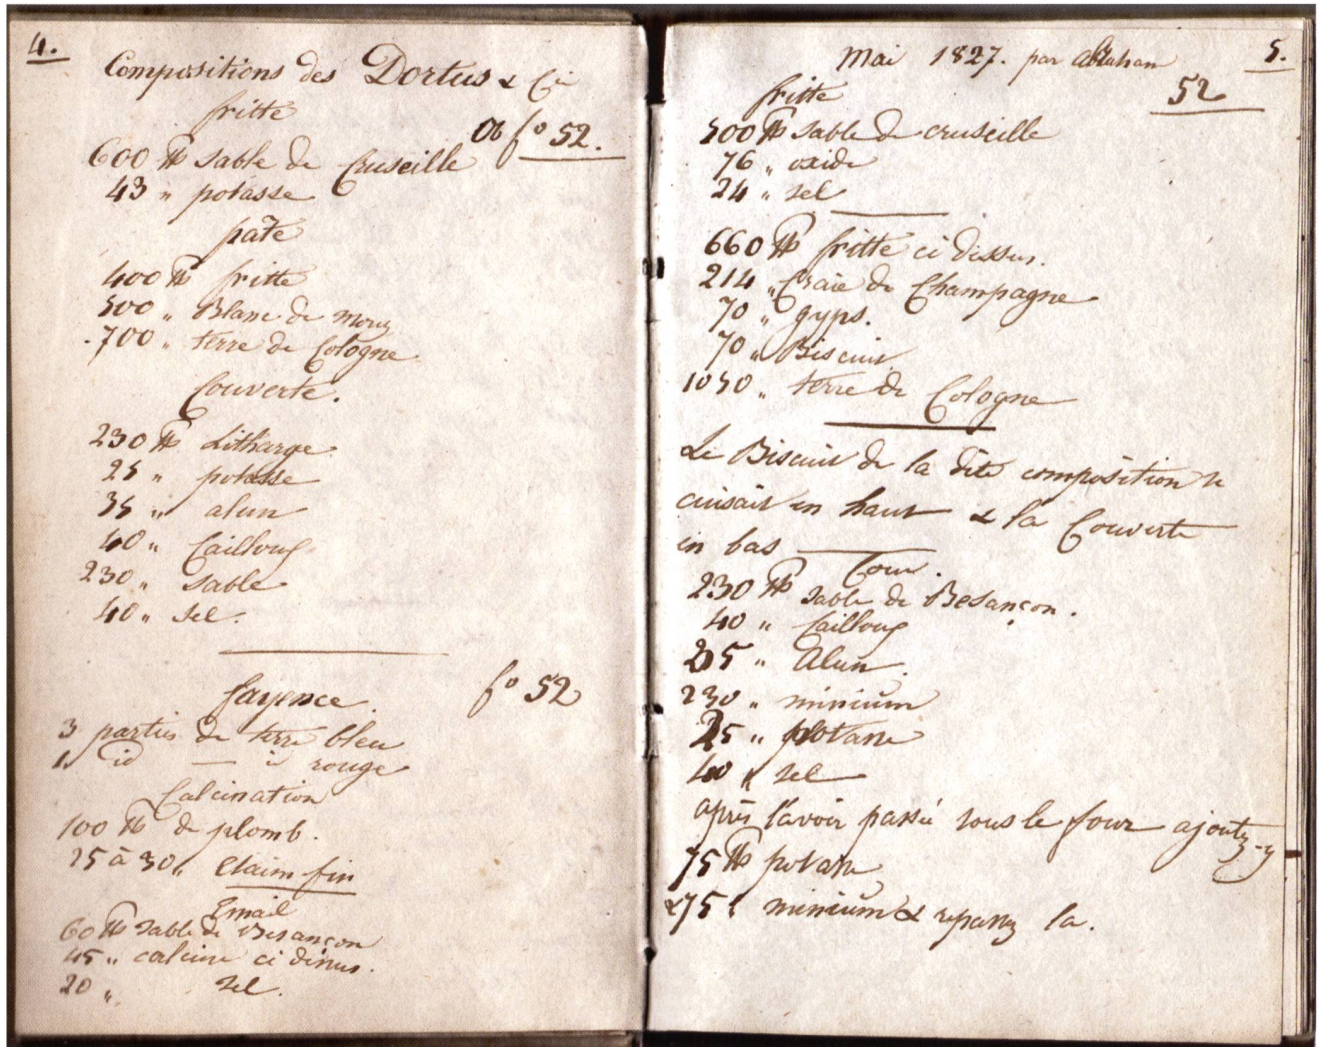 4.
Compositions des Dortus & Cie
fritte
f° 52.
600 ℔ sable de Cruseille
43 " potasse
pate
400 ℔ fritte
500 " Blanc de morez
700 " terre de Cologne
Couverte.
230 ℔ Litharge
25 " potasse
35 " alun
40 " Cailloux
230 " sable
40 " sel.
fayence. f° 52
3 parties de terre bleu
1 id — id rouge
Calcination
100 ℔ de plomb.
25 à 30 " Etaim fin
Email
60 ℔ sable de Besançon
45 " calcine ci dessus.
20 " sel.
Mai 1827. par abraham 5.
52
fritte
500 ℔ sable de cruseille
76 " oxide
24 " sel
660 ℔ fritte ci dessus.
214 " Craie de Champagne
70 " gyps.
70 " Biscuit
1050 " terre de Cologne
Le Biscuit de la dite composition se
cuisait en haut & la Couverte
en bas
Couv.
230 ℔ sable de Besançon.
40 " Cailloux
25 " Alun
230 " minium
25 " potasse
40 " sel
après l'avoir passé sous le four ajoutez-y
75 ℔ potasse
& 75 " minium & repassez la.